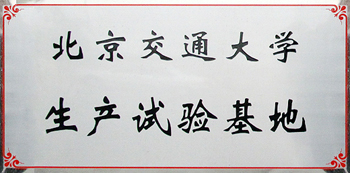 北京交通大学
生产试验基地